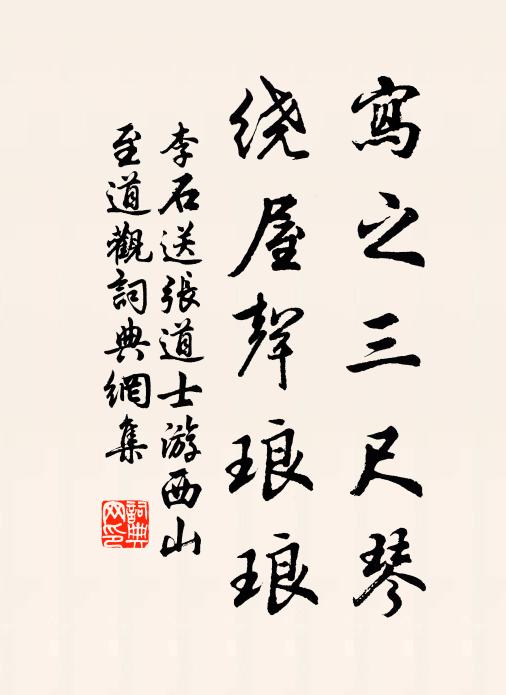 寫之三尺琴
绕屋聲琅琅
李石送張道士游西山
至道觀詞典網集
詞典網印